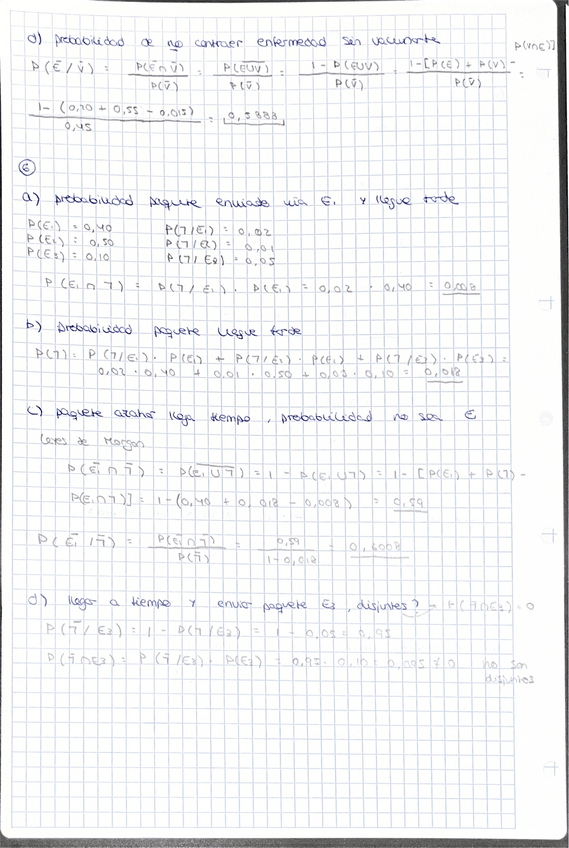 d) probabilidad de no contraer enfermedad sin vacunarte
P(Ē/V̄) = P(Ē∩V̄)/P(V̄) = P(\overline{EUV})/P(V̄) = 1-P(EUV)/P(V̄) = 1-[P(E)+P(V)-P(V∩E)]/P(V̄) =
1-(0,20 + 0,55 - 0,015)/0,45 = 0,5888
6
a) probabilidad paquete enviado via E₁ y llegue tarde
P(E₁) = 0,40 P(T/E₁) = 0,02
P(E₂) = 0,50 P(T/E₂) = 0,01
P(E₃) = 0,10 P(T/E₃) = 0,05
P(E₁∩T) = P(T/E₁) · P(E₁) = 0,02 · 0,40 = 0,008
b) probabilidad paquete llegue tarde
P(T) = P(T/E₁) · P(E₁) + P(T/E₂) · P(E₂) + P(T/E₃) · P(E₃) =
0,02 · 0,40 + 0,01 · 0,50 + 0,05 · 0,10 = 0,018
c) paquete llega tiempo, probabilidad no sea E
Leyes de Morgan
P(Ē₁∩T̄) = P(\overline{E₁UT}) = 1 - P(E₁UT) = 1 - [P(E₁) + P(T) -
P(E₁∩T)] = 1-(0,40 + 0,018 - 0,008) = 0,59
P(Ē₁/T̄) = P(Ē₁∩T̄)/P(T̄) = 0,59/1-0,018 = 0,6008
d) llegar a tiempo y enviar paquete E₃, disjuntos? → P(T̄∩E₃) = 0
P(T̄/E₃) = 1 - P(T/E₃) = 1 - 0,05 = 0,95
P(T̄∩E₃) = P(T̄/E₃) · P(E₃) = 0,95 · 0,10 = 0,095 ≠ 0 no son
disjuntos